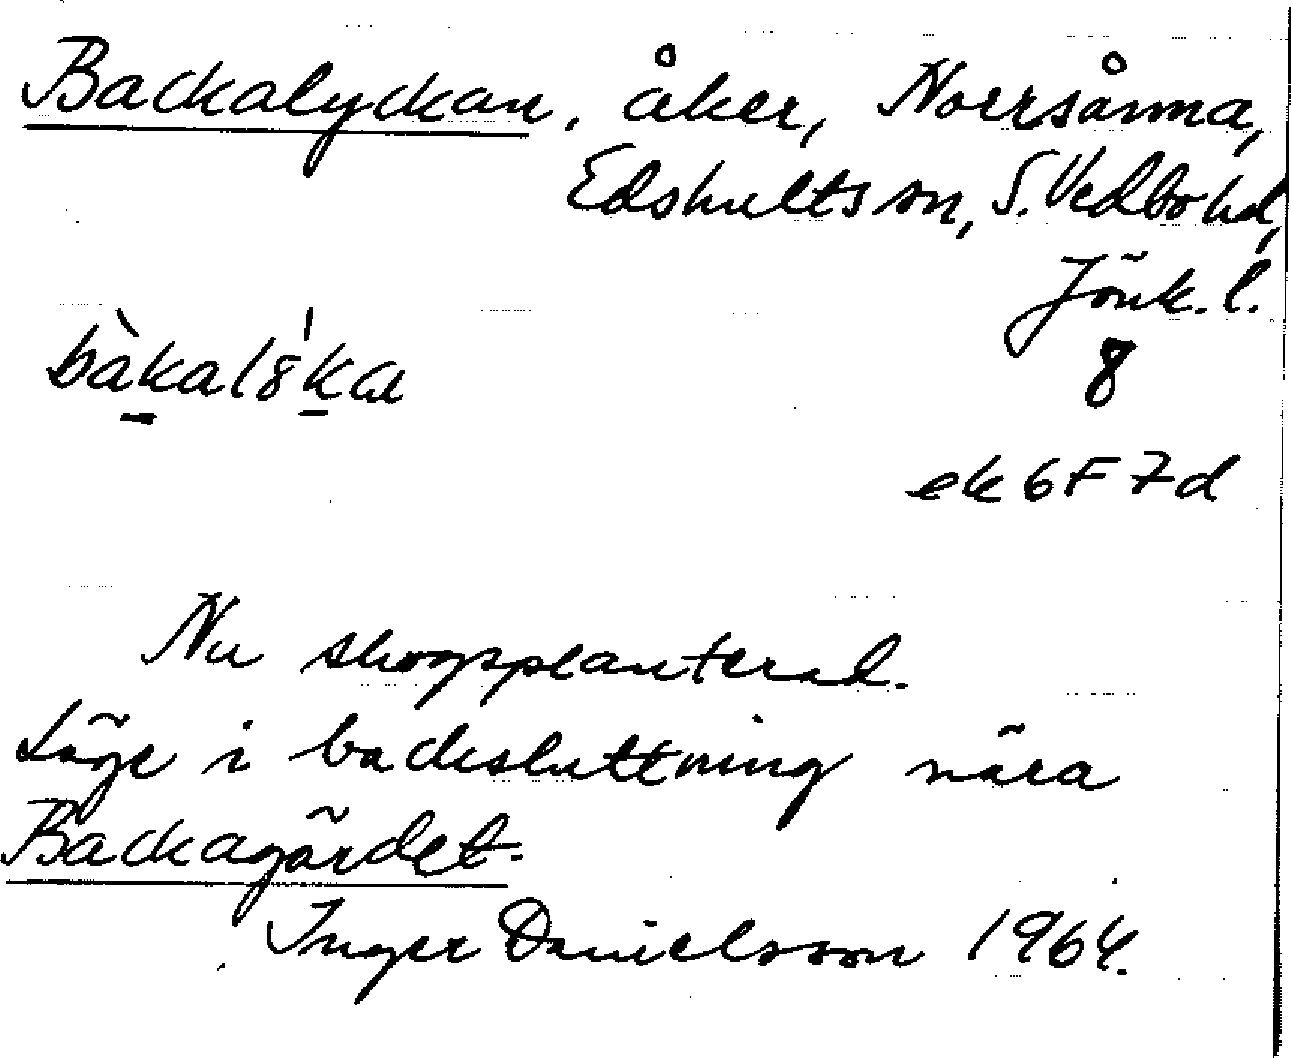 Backalyckan, åker, Norrsånna,
Edshults sn, S. Vedbo hd,
Jönk. l.
bàkalö̀ka
8
ek 6F 7d
Nu skogsplanterad.
Läge i backsluttning nära
Backagärdet.
Inger Danielsson 1964.